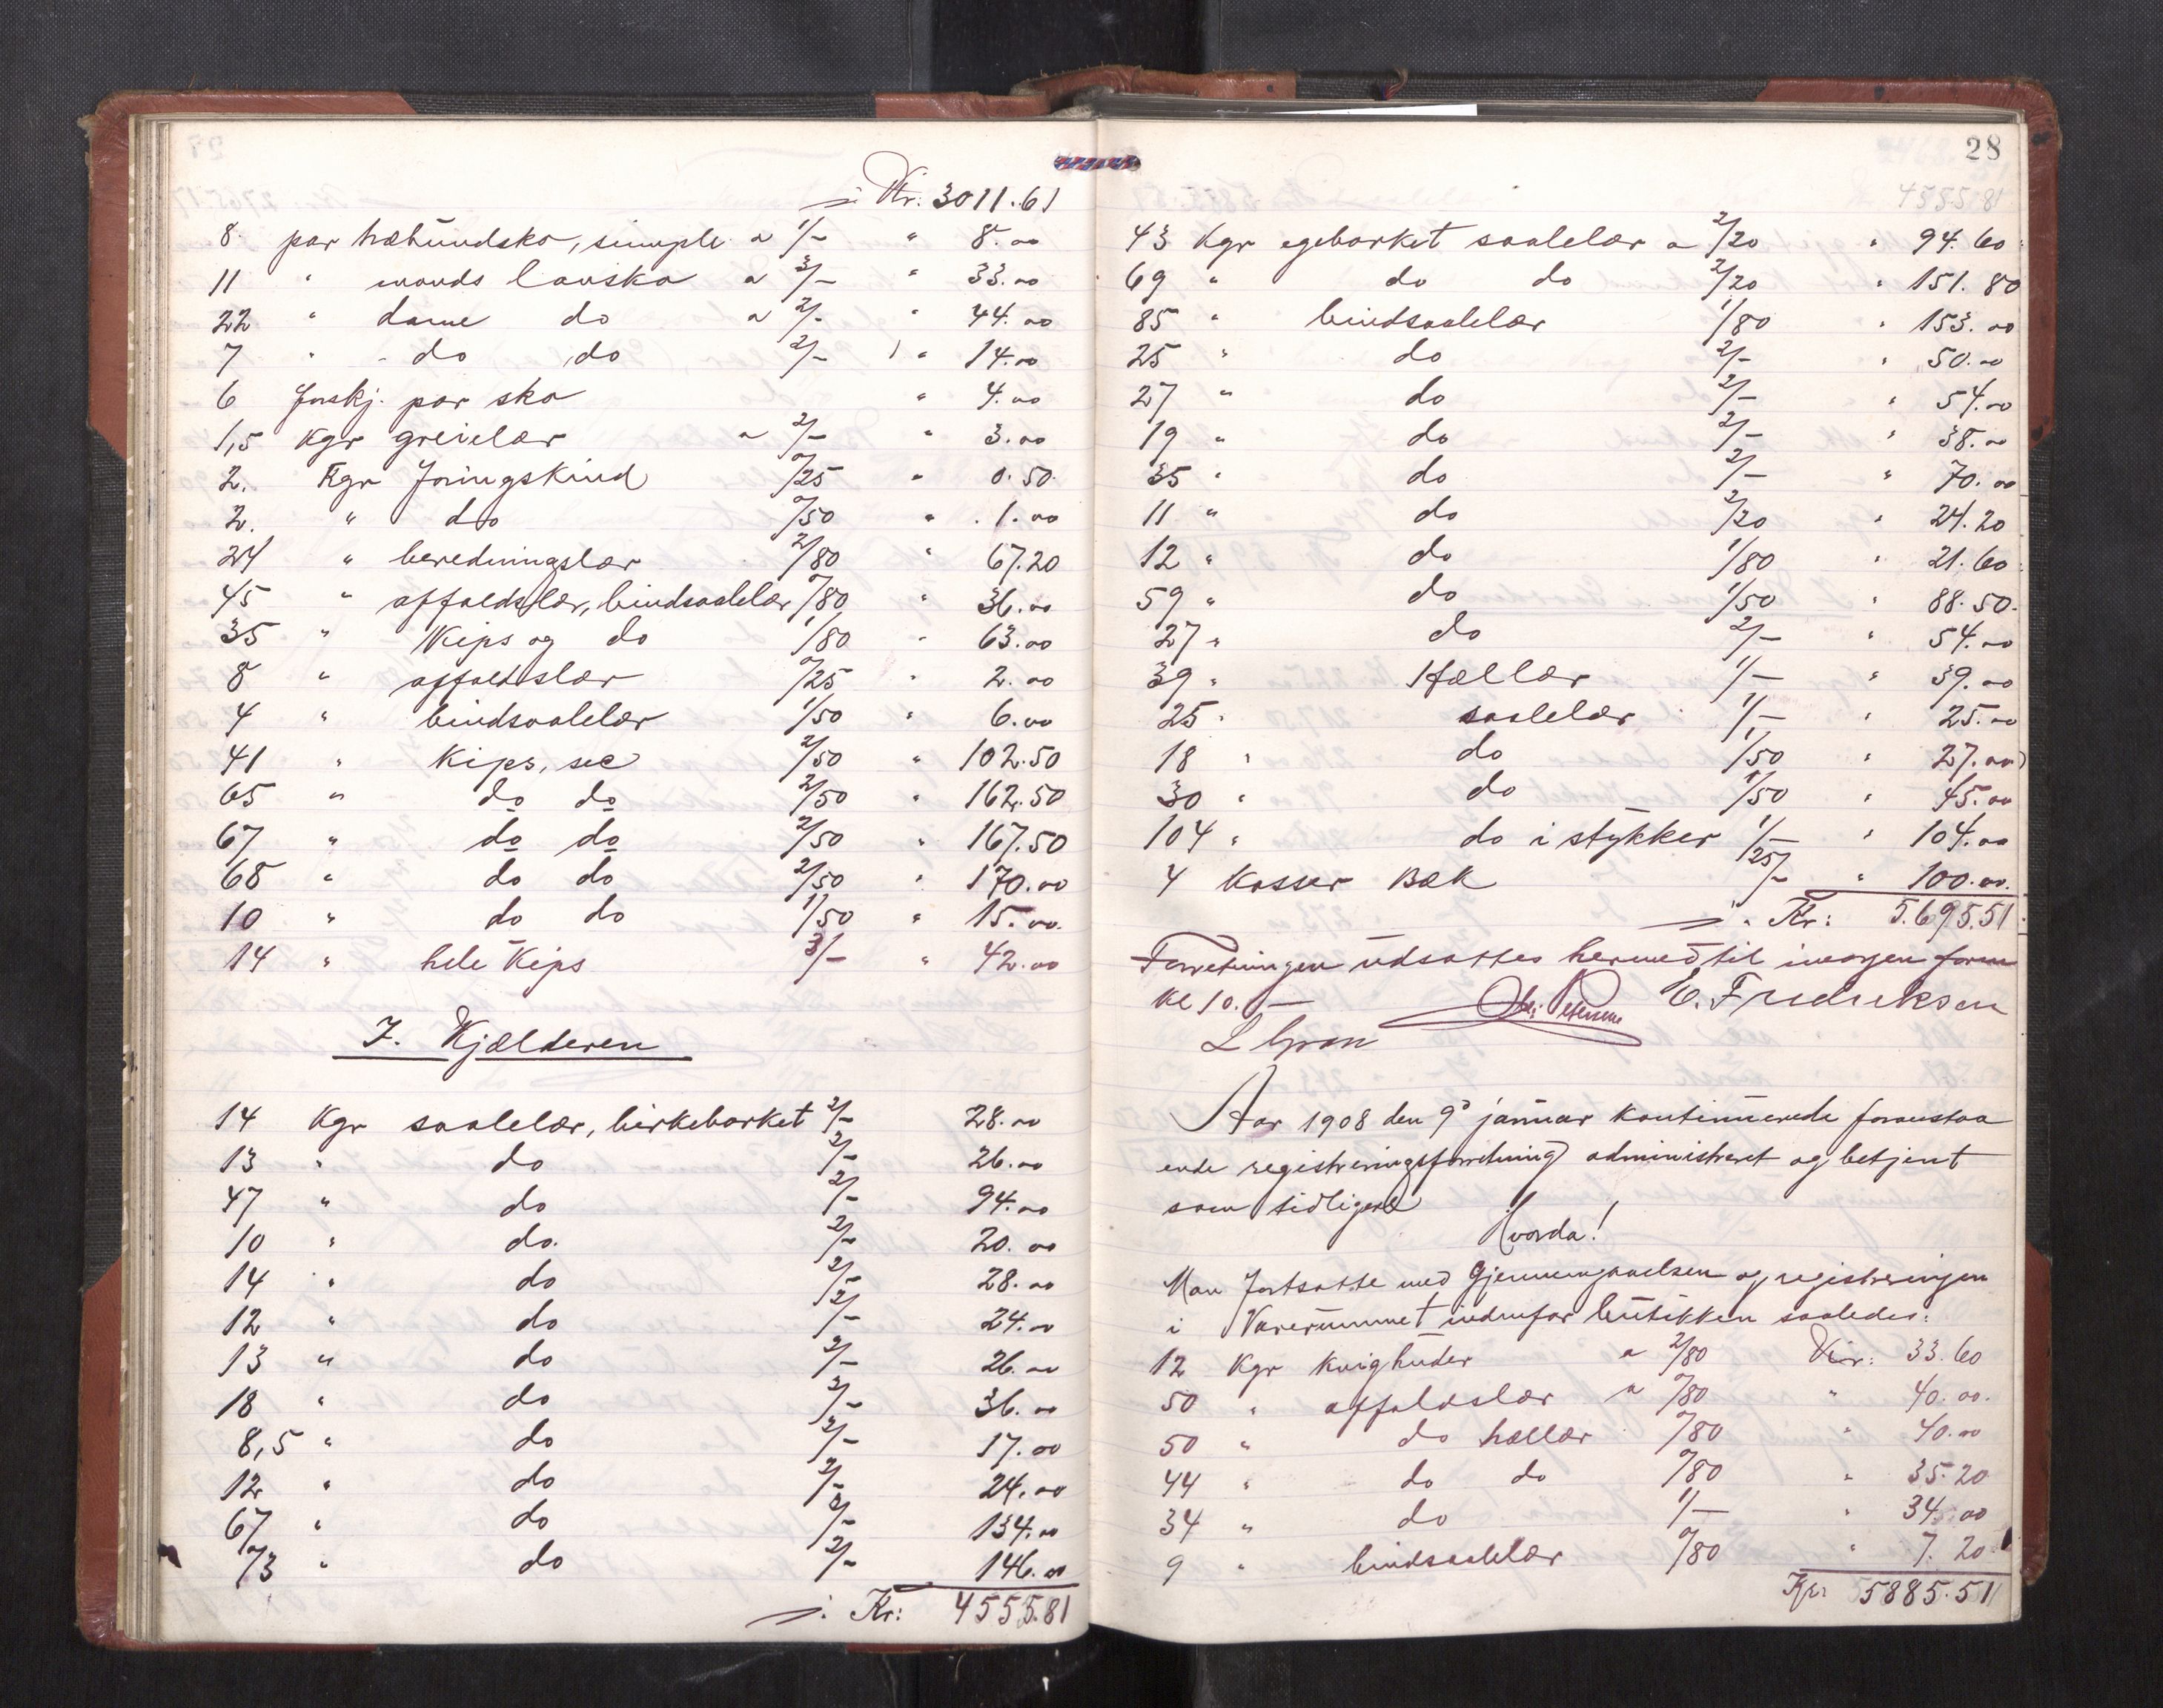 Kr. 3011.61
8 par træbundsko, simple a 1/- " 8.00
11 " mands lausko a 3/- " 33.00
22 " dame do a 2/- " 44.00
7 " do do 2/- " 14.00
6 forskj. par sko " 4.00
1,5 Kgr greielær a 2/- " 3.00
2. Kgr foringskind 0/25 " 0.50
2. " do 0/50 " 1.00
24 " beredningslær 2/80 " 67.20
45 " affaldslær, bindsaalelær 0/80 " 36.00
35 " Kips og do 1/80 " 63.00
8 " affaldslær 0/25 " 2.00
4 " bindsaalelær 1/50 " 6.00
41 " Kips, sec 2/50 " 102.50
65 " do do 2/50 " 162.50
67 " do do 2/50 " 167.50
68 " do do 2/50 " 170.00
10 " do do 1/50 " 15.00
14 " hele Kips 3/- " 42.00
I. Kjælderen
14 Kgr saalelær, birkebarket 2/- 28.00
13 " do 2/- 26.00
47 " do 2/- 94.00
10 " do. 2/- 20.00
14 " do 2/- 28.00
12 " do 2/- 24.00
13 " do 2/- 26.00
18 " do 2/- 36.00
8,5 " do 2/- 17.00
12 " do 2/- 24.00
67 " do 2/- 134.00
73 " do 2/- 146.00
Kr: 4555.81
28
4555.81
43 Kgr egebarket saalelær a 2/20 " 94.60
69 " do do 2/20 " 151.80
85 " bindsaalelær 1/80 " 153.00
25 " do 2/- " 50.00
27 " do 2/- " 54.00
19 " do 2/- " 38.00
35 " do 2/- " 70.00
11 " do 2/20 " 24.20
12 " do 1/80 " 21.60
59 " do 1/50 " 88.50
27 " do 2/- " 54.00
39 " Hællær 1/- " 39.00
25 " saalelær 1/- " 25.00
18 " do 1/50 " 27.00
30 " do 1/50 " 45.00
104 " do i stykker 1/- " 104.00
4 Kasser Bæk 25/- " 100.00
Kr: 5.695.51
Forretningen udsattes hermed til imorgen form
Kl 10. – E. Fredriksen
Aar 1908 den 9d januar kontinuerede foranstaa
ende registreringsforretning administreret og betjent
som tidligere
Hvorda!
Man fortsatte med Gjennemgaaelsen og registreringen
i Varerummet indenfor butikken saaledes:
12 Kgr kvighuder a 2/80 Kr: 33.60
50 " affaldslær a 0/80 " 40.00
50 " do hællær 0/80 " 40.00
44 " do do 0/80 " 35.20
34 " do 1/- " 34.00
9 " bindsaalelær 0/80 " 7.20
Kr 5885.51